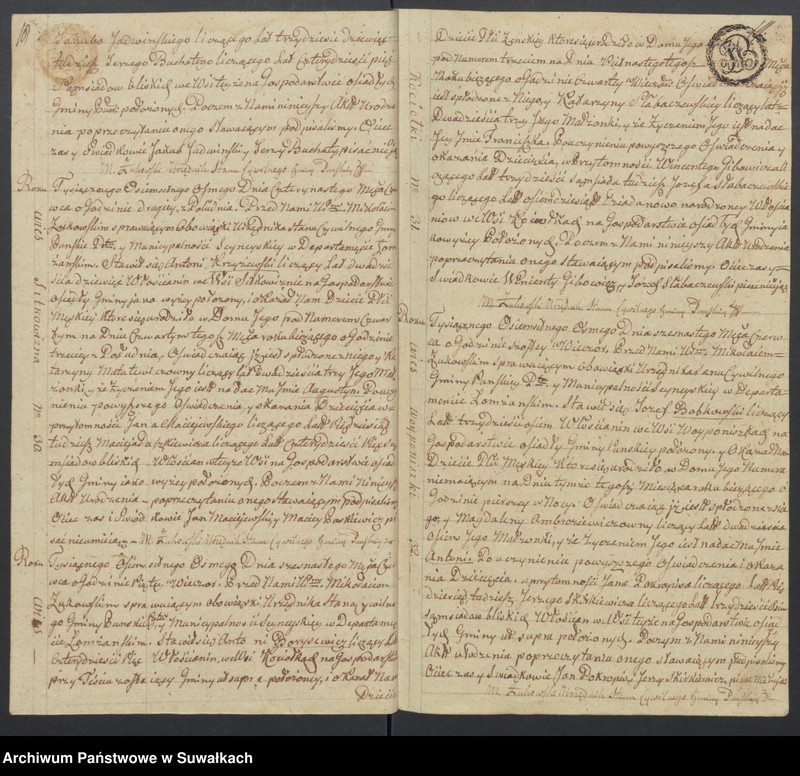 Jakuba Jadwinskiego liczącego Lat trzydzieści dziewięć
tudzież Jerzego Buchotego liczącego Lat Czterdzieści pięć
Sąmsiadow bliskich we Wsi tyże na Gospodarstwie osiadłych
Gminy położonych. Poczem z Nami ninieyszy Akt Urodze-
nia po przeczytaniu onego Stawaiącym podpisaliśmy. Ociec
zas y Swiadkowie Jakub Jadwinski y Jerzy Buchoty pisać nieumieją
M. Żukowski Urzędnik Stanu Cywilnego Gminy Puńskiy
Roku Tysiącznego Osiemsetnego Osmego Dnia Czternastego Mca Czer-
wca o Godzinie drugiey z Południa. Przed Nami Mikołaiem
Żukowskim sprawuiącym Obowiązki Urzędnika Stanu Cywilnego Gminy
Puńskie Pttu y Municypalności Seyneyskiy w Departamęcie Łom-
żańskim. Stawił się Antoni Krzyżewski liczący Lat dwadzie-
ścia dziewięć Włościanin we Wsi Sitkowiznie na Gospodarstwie
osiadły Gminy ja ko wyżey położony, i okazał Nam Dziecie Płci
Męzkiey ktore się urodziło w Domu Jego pod Numerem Czwar-
tym na Dniu Czwartym tegoż Mca roku bieżącego o Godzinie
trzeciey z Południa, Oswiadczaiąc iż jest spłodzone z niego, y Ka-
tarzyny liczący Lat dwadzieścia trzy Jego Mał-
żonki, y że życzeniem Jego iest nadać mu Imie Augustyn. Po uczy-
nieniu powyższego Oswiadczenia y okazania Dziecięcia w przy-
przytomności Jana Maciejewskiego liczącego Lat Pięćdziesiąt
tudzież Macieja liczącego Lat Czterdzieści Pięć Są-
msiadow bliskich Włościan w teyże Wsi na Gospodarstwie osiad-
łych Gminy iako wyżey położonych. Poczem z Nami ninieyszy
Akt Urodzenia poprzeczytaniu onego Stawaiącym podpisaliśmy
Ociec zas i Swiadkowie Jan Maciejewski y Maciey pi-
sać nieumieią — M. Żukowski Urzędnik Stanu Cywilnego Gminy Puńskiy
Roku Tysiącznego Osiemsetnego Osmego Dnia szesnastego Mca Czer-
wca o Godzinie Piątey w Wieczor. Przed Nami Mikołaiem
Żukowskim sprawuiącym obowiązki Urzędnika Stanu Cywilne-
go Gminy Puńskiey y Municypalności Seyneyskiy w Departamę-
cie Łomżańskim. Stawił się Antoni Borysewicz liczący Lat
Czterdzieści Pięć Włościanin, we Wsi Kociołkach na Gospodarstwie
przy Teściu zostaiący Gminy ut supra położoney, i okazał Nam
Dziecie
Akt Sitkowizna No 30
Akt
Dziecie Płci Żenskiey Ktore się urodziło w Domu Jego
pod Numerem trzecim na Dniu Piętnastego tegoż Mca
Roku bieżącego o Godzinie Czwartey w Wieczor. Oswiadczaiąc iż
iest spłodzone z Niego, y Katarzyny Słabaczewskiey liczący Lat
Dwadzieścia trzy Jego Małżonki, y że Życzeniem Jego iest nadać
Jey Imie Franciszka. Po uczynieniu powyższego Oswiadczenia y
okazania Dziecięcia, w Przytomności Wincentego Gibowicza li-
czącego Lat trzydzieści Sąmsiada tudzież Jozefa Słabaczewskie-
go liczącego Lat osiemdziesiąt Dziada nowo narodzoney Włościa-
niow we Wsi Kociołkach na Gospodarstwie osiadłych Gminy ja-
ko wyżey Położonych. Poczem z Nami ninieyszy Akt Urodzenia
poprzeczytaniu onego Stawaiącym podpisaliśmy Ociec zas y
Swiadkowie Wincenty Gibowicz y Jozef Słabaczewski pisać nieumieją
M. Żukowski Urzędnik Stanu Cywilnego Gminy Puńskiy
Roku Tysiącznego Osiemsetnego Osmego Dnia szesnastego Mca Czerw-
ca o Godzinie szostey w Wieczor. Przed Nami Mikołaiem
Żukowskim sprawuiącym obowiązki Urzędnika Stanu Cywilnego
Gminy Puńskiey Pttu y Municypalności Seyneyskiy w Departa-
męcie Łomżańskim. Stawił się Jozef Bobkowski liczący
Lat trzydzieści osiem Włościanin we Wsi Woyponiszkach na
Gospodarstwie osiadły Gminy Puńskiey położoney, y Okazał Nam
Dziecie Płci Męskiey Ktore się urodziło w Domu Jego Numera
niemaiącym na Dniu tymże tegoż Miesiąca roku bieżącego o
Godzinie pierwszey w Nocy. Oswiadczaiąc iż iest spłodzone z nie-
go, y Magdaleny Ambrożiewiczowny liczący Lat dwadzieścia
osiem Jego Małżonki, y że Życzeniem Jego iest nadać mu Imie
Antoni. Po uczynieniu powyższego Oswiadczenia i okaza-
nia Dziecięcia, w przytomności Jana Pokropisa liczącego Lat
tudzież Jerzego Skirkiewicza liczącego Lat Trzydzieści
sąmsiadow bliskich Włościan we Wsi tyże na Gospodarstwie osia-
łych Gminy ut supra położonych. Poczym z Nami ninieyszy
Akt urodzenia poprzeczytaniu onego Stawaiącym podpisaliśmy
Ociec zas y Swiadkowie Jan Pokropis y Jerzy Skirkiewicz pisać nieumieją
M. Żukowski Urzędnik Stanu Cywilnego Gminy Puńskiy
Kociołki No 31
Akt Woyponiszki 32
Archiwum Państwowe w Suwałkach